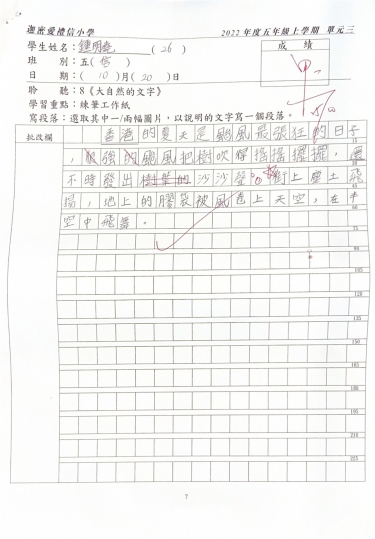 迦密愛禮信小學 2022 年度五年級上學期 單元三
學生姓名：鍾明 (26) 成績
班 別：五( ) 甲
日 期：(10)月(20)日
聆 聽：8《大自然的文字》
學習重點：練筆工作紙
寫段落：選取其中一/兩幅圖片，以說明的文字寫一個段落。
批改欄
香港的夏天是颱風最張狂的日子
15
，強的颱風把樹吹得搖搖擺擺，還
30
不時發出樹葉的沙沙聲。街上塵土飛
45
揚，地上的膠袋被風捲上天空，在半
60
空中飛舞。
75
90
105
120
135
150
165
180
195
210
225
7